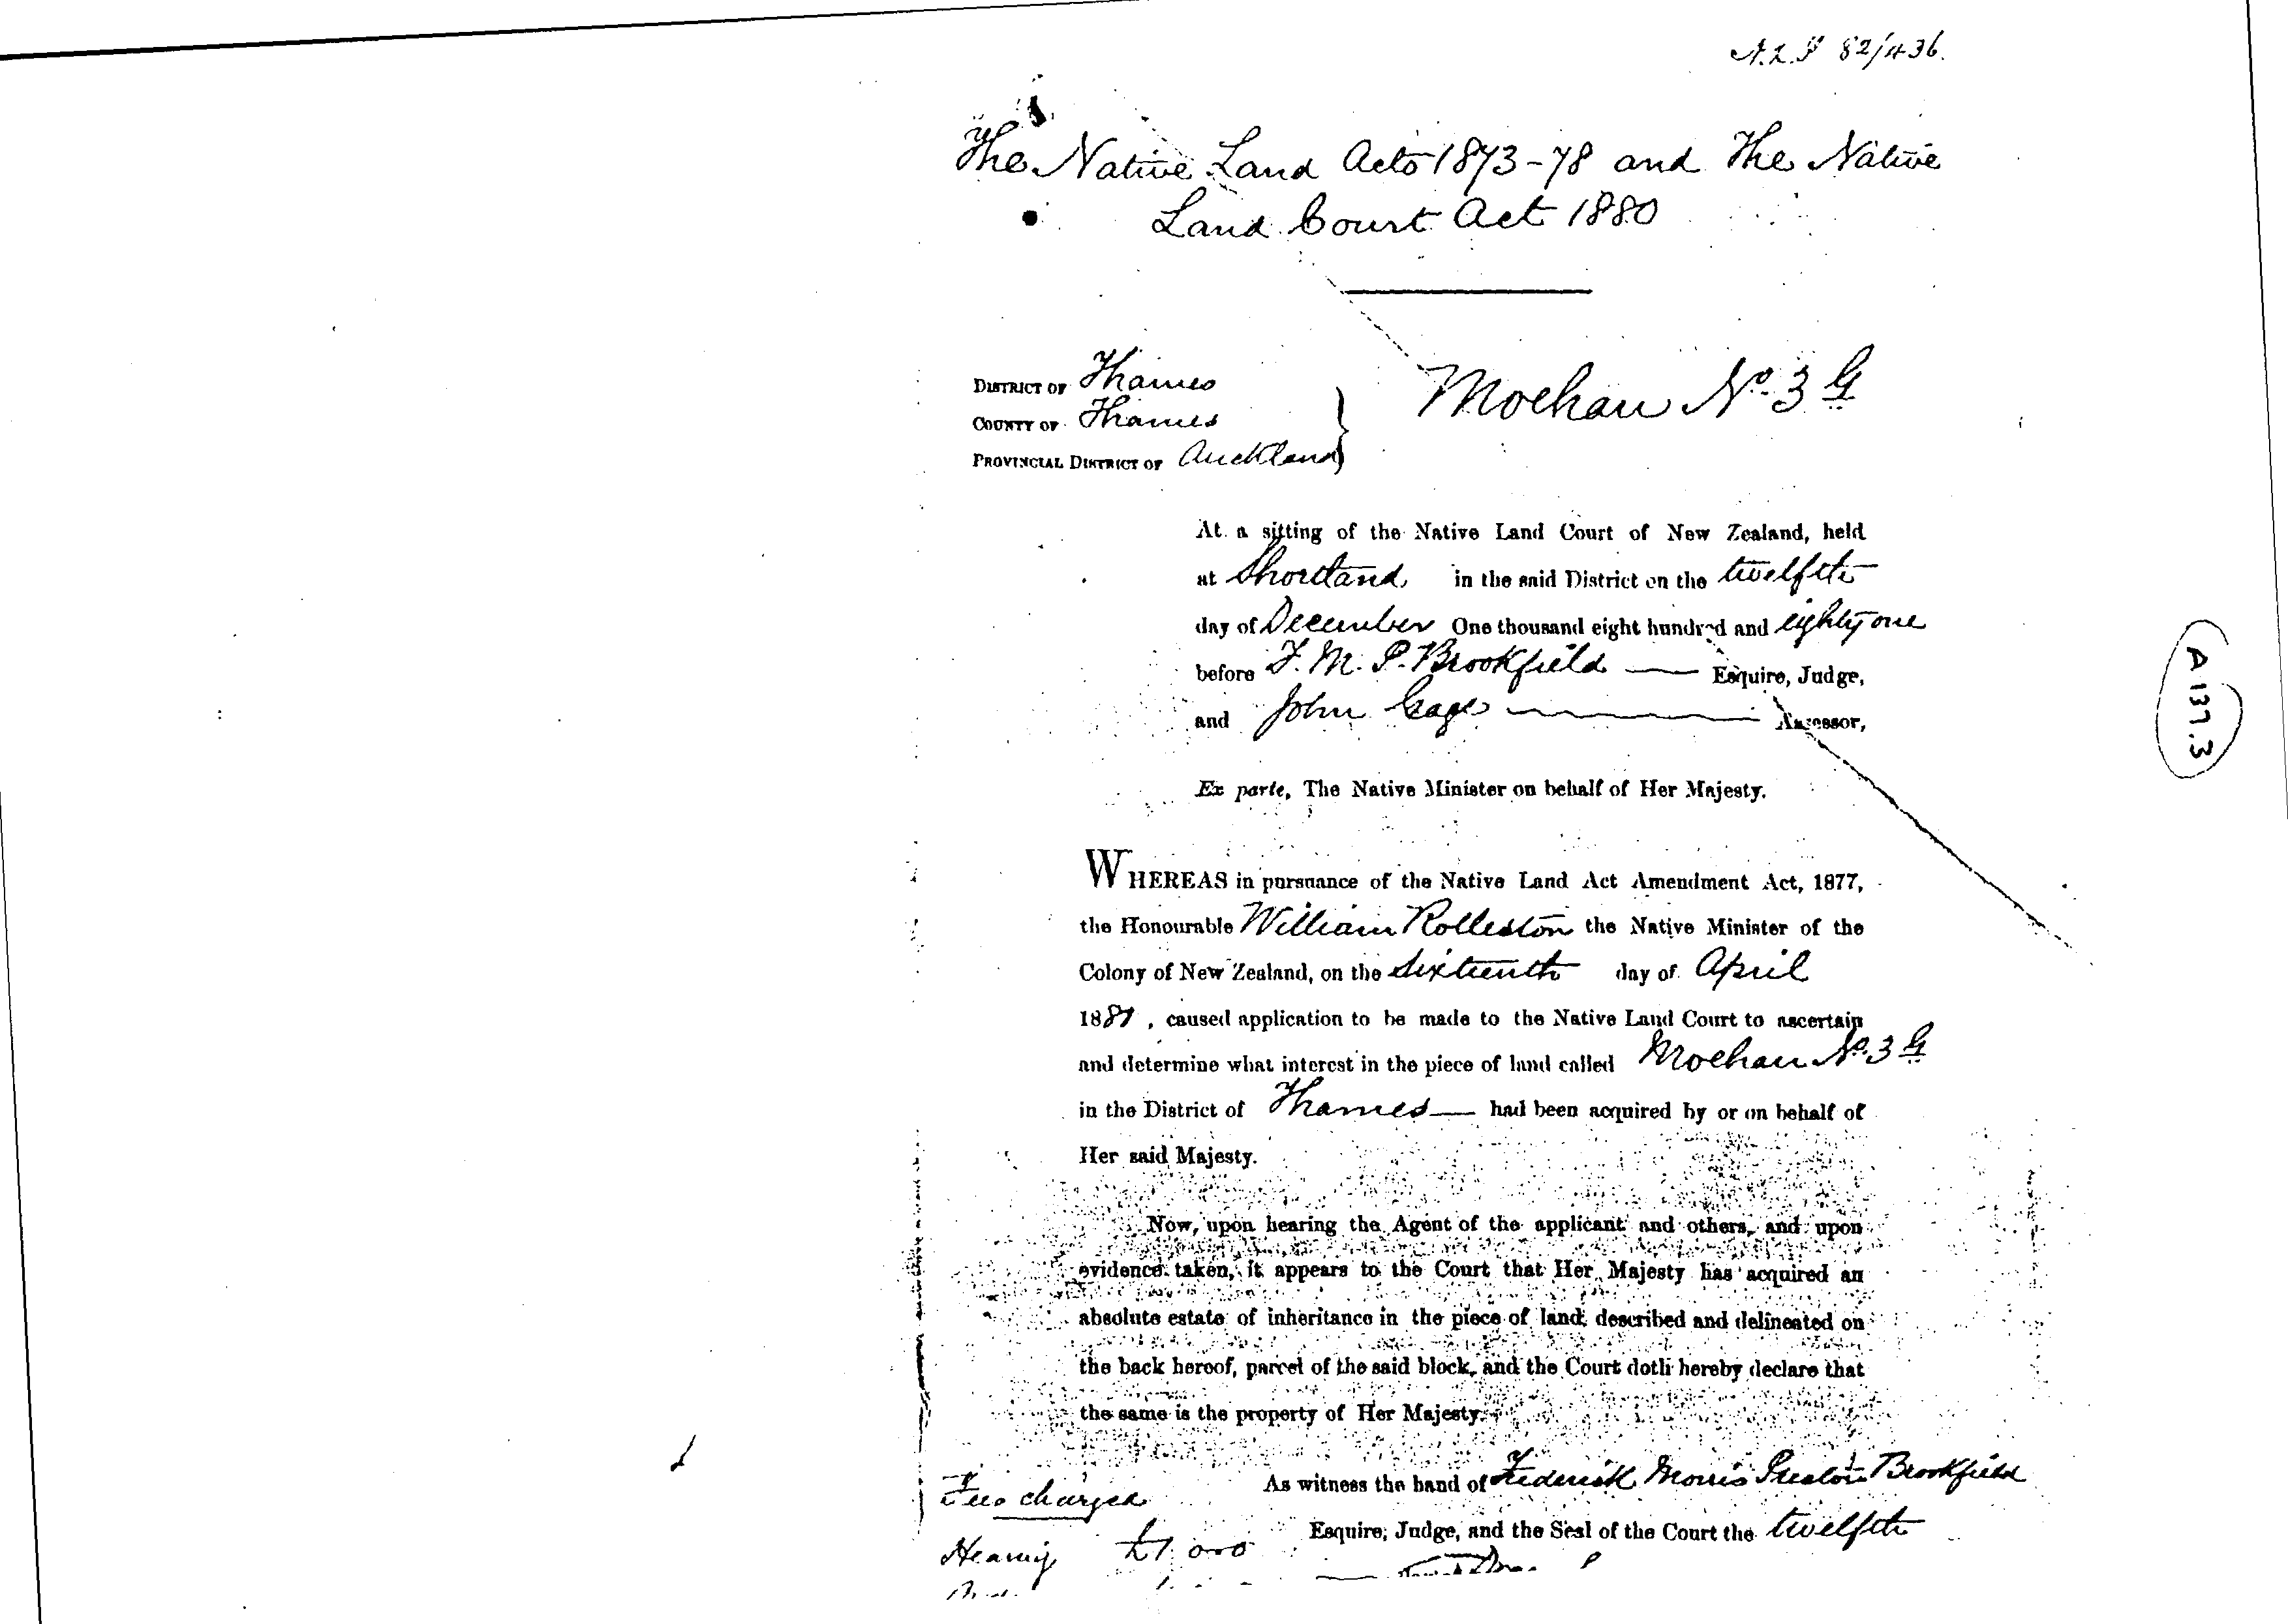 N.L.P 82/436.
The Native Land Acts 1873-78 and The Native
Land Court Act 1880
DISTRICT OF Thames
COUNTY OF Thames
PROVINCIAL DISTRICT OF Auckland
Moehau No. 3 G
At a sitting of the Native Land Court of New Zealand, held
at Shortland in the said District on the twelfth
day of December One thousand eight hundred and eighty one
before F. M. P. Brookfield Esquire, Judge,
and John Gage Assessor,
A 137.3
Ex parte, The Native Minister on behalf of Her Majesty.
WHEREAS in pursuance of the Native Land Act Amendment Act, 1877,
the Honourable William Rolleston the Native Minister of the
Colony of New Zealand, on the sixteenth day of April
1881, caused application to be made to the Native Land Court to ascertain
and determine what interest in the piece of land called Moehau No. 3 G
in the District of Thames had been acquired by or on behalf of
Her said Majesty.
Now, upon hearing the Agent of the applicant and others, and upon
evidence taken, it appears to the Court that Her Majesty has acquired an
absolute estate of inheritance in the piece of land, described and delineated on
the back hereof, parcel of the said block, and the Court doth hereby declare that
the same is the property of Her Majesty.
As witness the hand of Frederick Morris Preston Brookfield
Esquire, Judge, and the Seal of the Court the twelfth
Fees charged
Hearing £1. 0 0